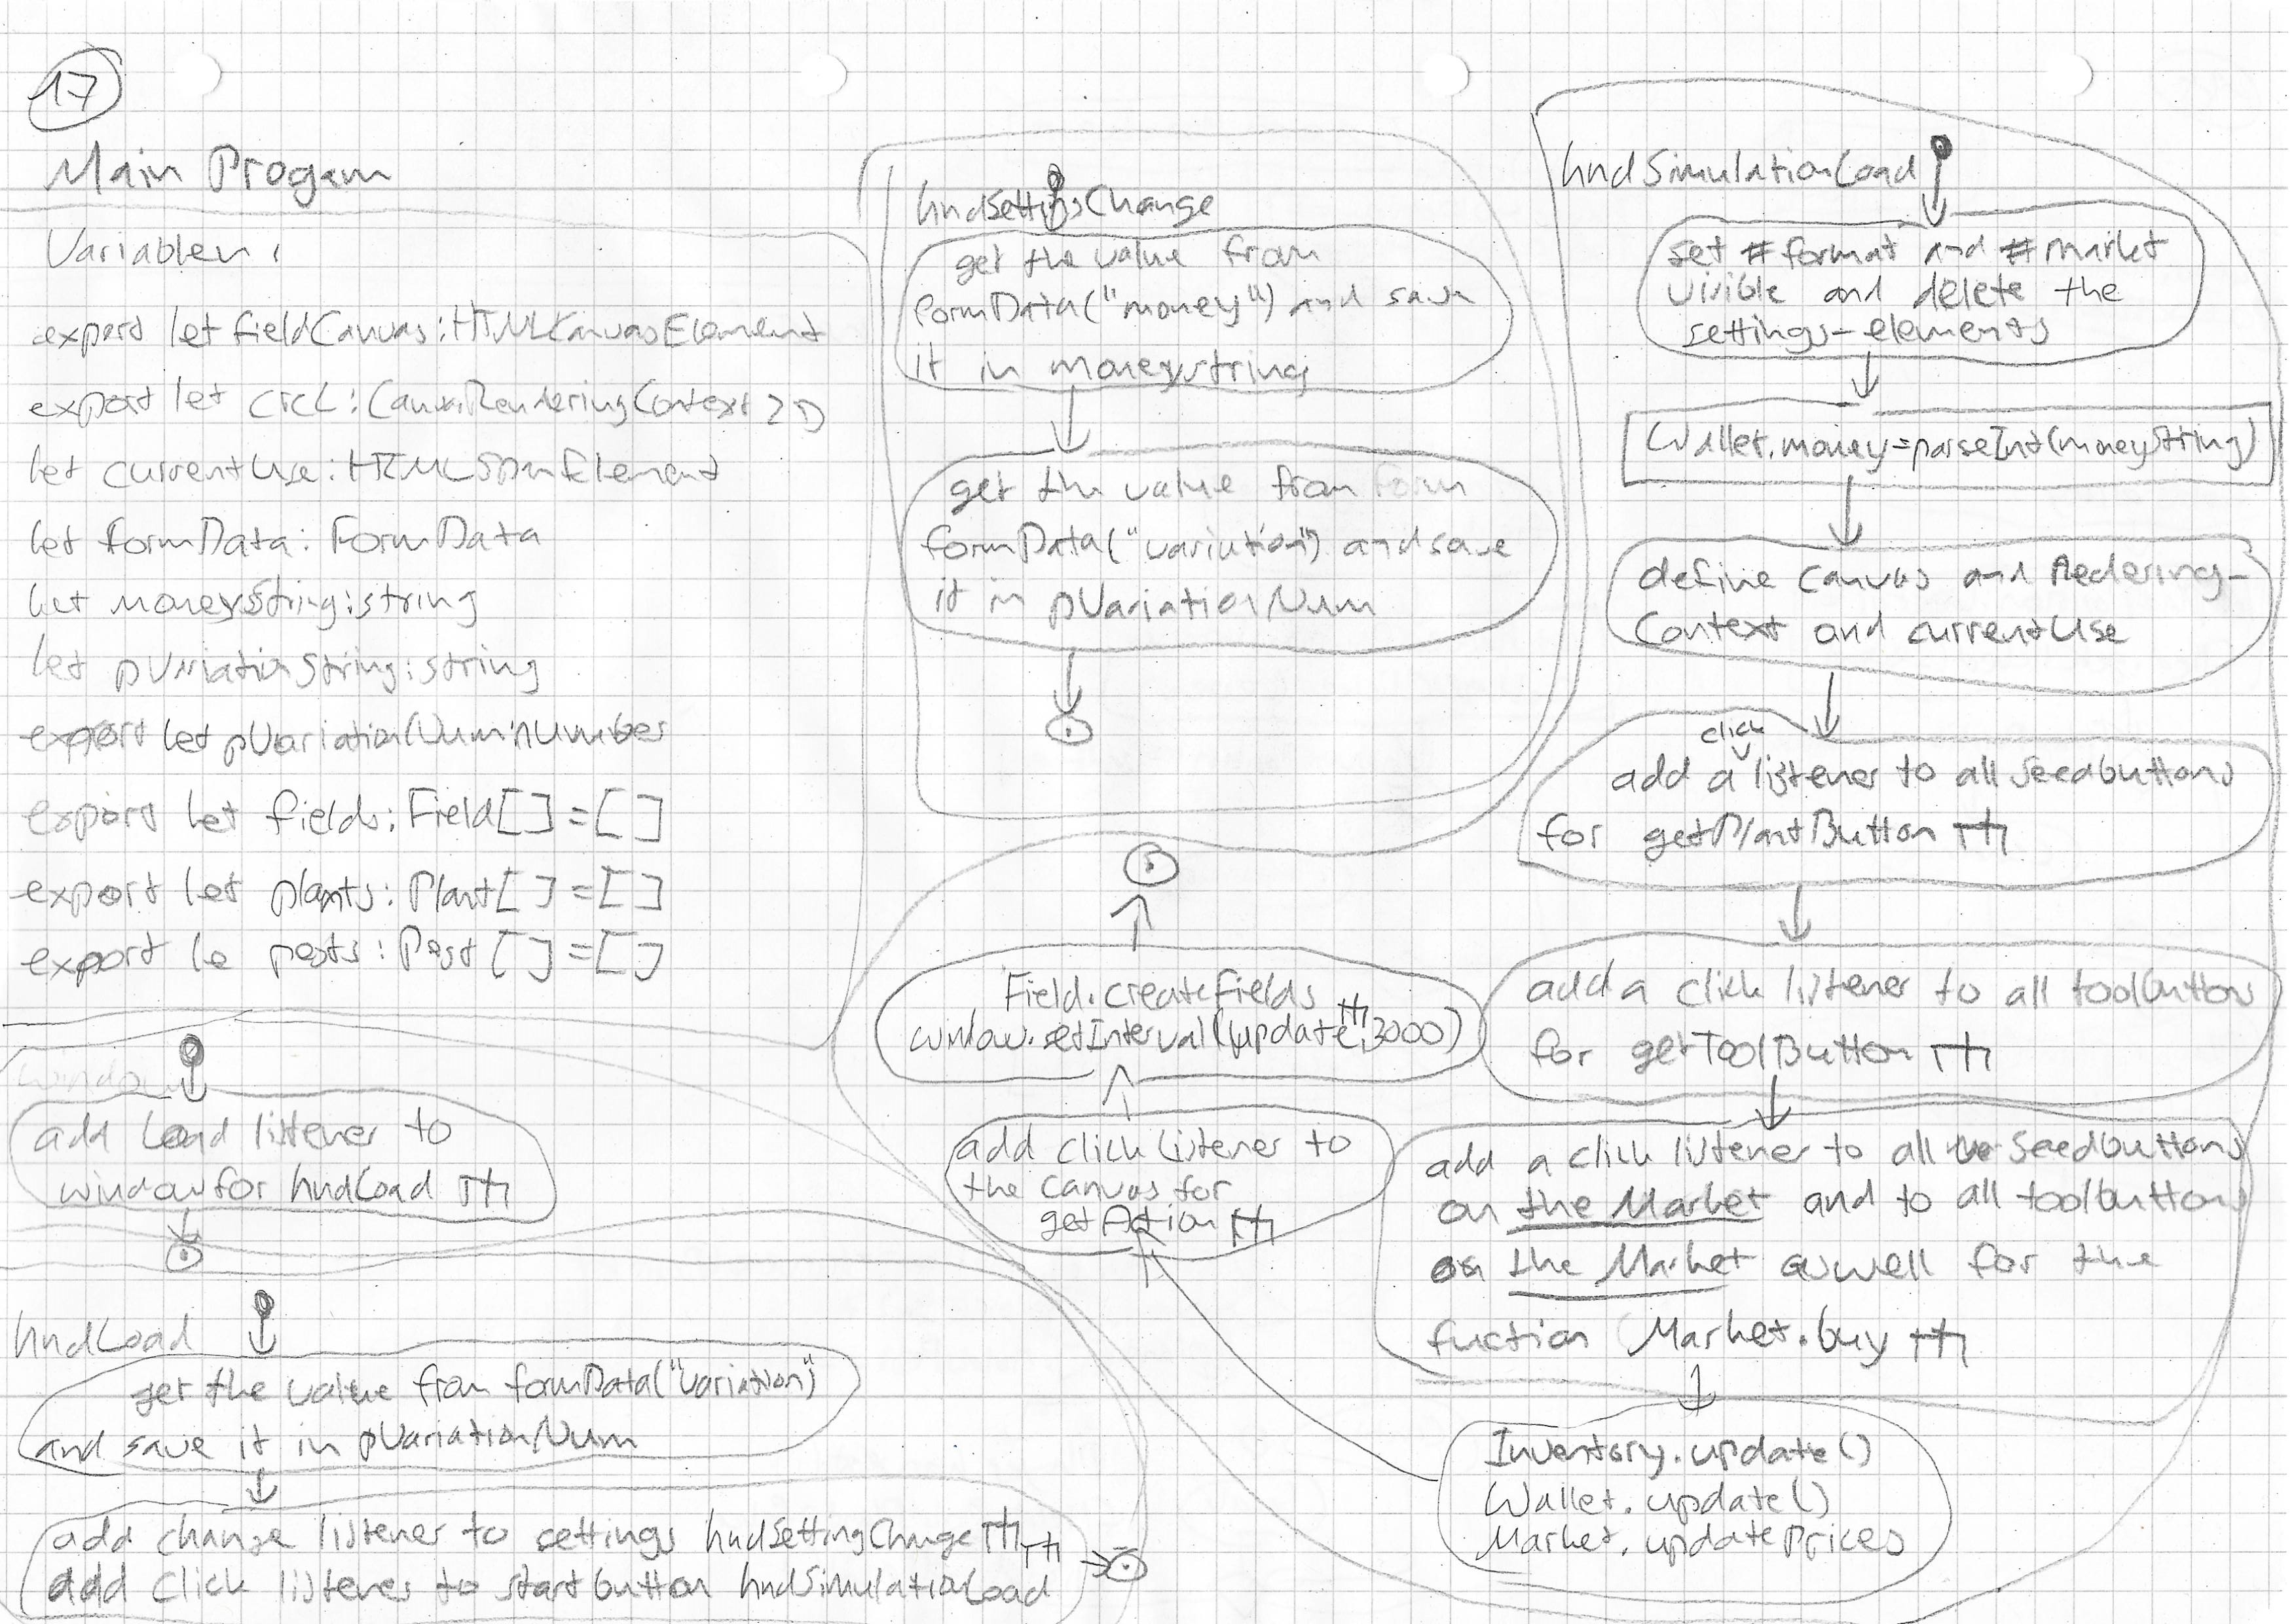 17
Main Progam
Variablen:
export let fieldCanvas: HTMLCanvasElement
export let crc2: CanvasRenderingContext2D
let currentUse: HTMLSpanElement
let formData: FormData
let moneyString: string
let pVariationString: string
export let pVariationNum: number
export let fields: Field[] = []
export let plants: Plant[] = []
export le pests: Pest[] = []
window
add load listener to
window for hndLoad
hndLoad
get the value from formData("variation")
and save it in pVariationNum
add change listener to settings hndSettingChange
add click listener to startbutton hndSimulationLoad
hndSettingsChange
get the value from
formData("money") and save
it in moneystring
get the value from form
formData("variation") and save
it in pVariationNum
hndSimulationLoad
set #format and #market
visible and delete the
settings-elements
Wallet.money=parseInt(moneyString)
define Canvas and Redering-
Context and currentUse
click
add a listener to all seedbuttons
for getPlantButton
add a click listener to all toolbutton
for getToolButton
add a click listener to all seedbuttons
on the Market and to all toolbuttons
on the Market aswell for the
fuction Market.buy
Inventory.update()
Wallet.update()
Market.updatePrices
add click listener to
the canvas for
getAction
Field.createFields
window.setInterval(update,3000)